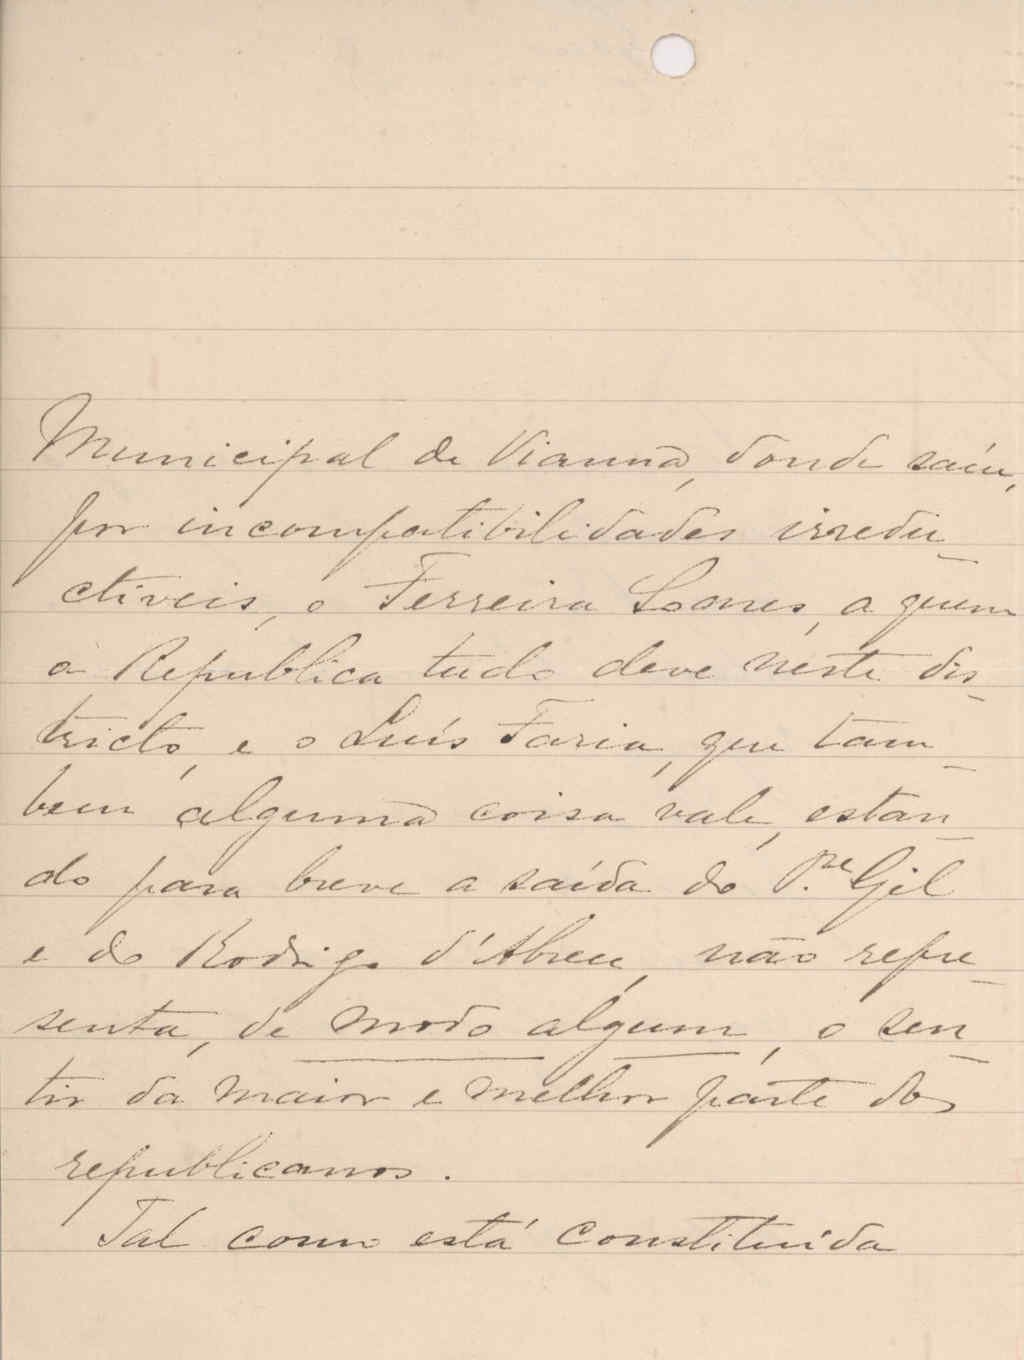 Municipal de Vianna, donde saíu,
por incompatibilidades irredu-
ctiveis, o Ferreira Soares, a quem
a Republica tudo deve neste dis-
tricto, e o Luís Faria, que tam-
bem alguma coisa vale, estan-
do para breve a saída do P.re Gil
e do Rodrigo d'Abreu, não repre-
senta, de modo algum, o sen-
tir da maior e melhor parte dos
republicanos.
Tal como está constituida